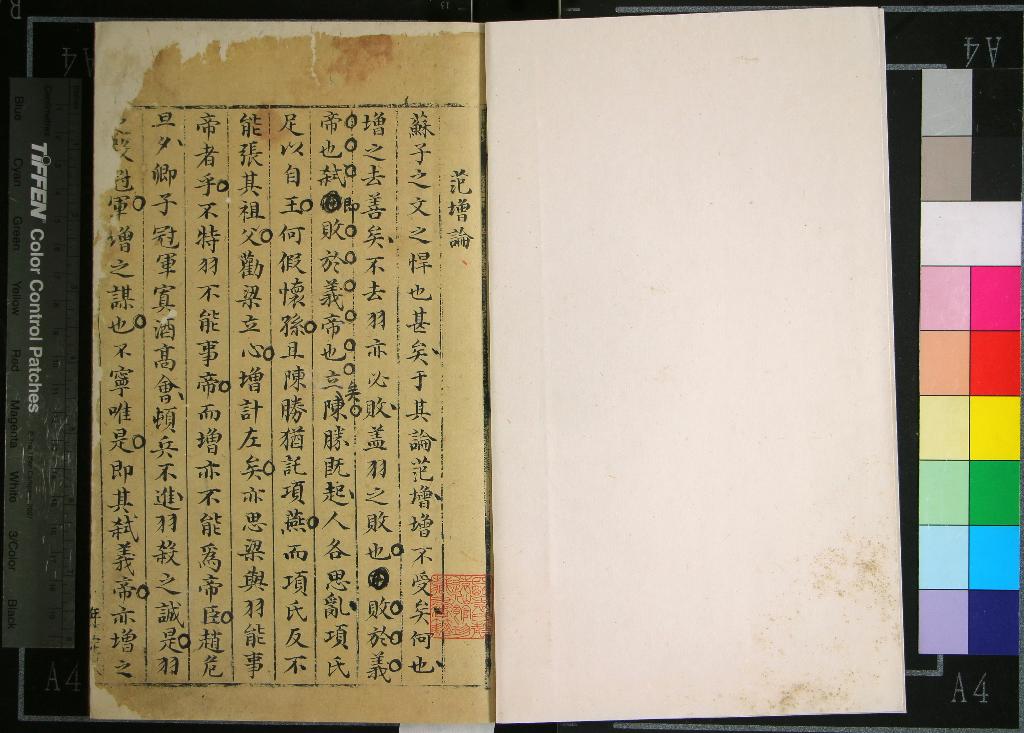 范增論
蘇子之文之悍也甚矣于其論范增增不受矣何也
增之去善矣不去羽亦必敗盖羽之敗也敗於義
帝也弑即敗於義帝也立矣陳勝既起人各思亂項氏
足以自王何假懷孫且陳勝猶託項燕而項氏反不
能張其祖父勸梁立心增計左矣亦思梁與羽能事
帝者乎不特羽不能事帝而增亦不能爲帝臣趙危
旦夕卿子冠軍寘酒高會頓兵不進羽殺之誠是羽
冠軍增之謀也不寧唯是即其弑義帝亦增之
TIFFEN Color Control Patches
Blue Cyan Green Yellow Red Magenta White 3/Color Black
A4
A4
A4
A4